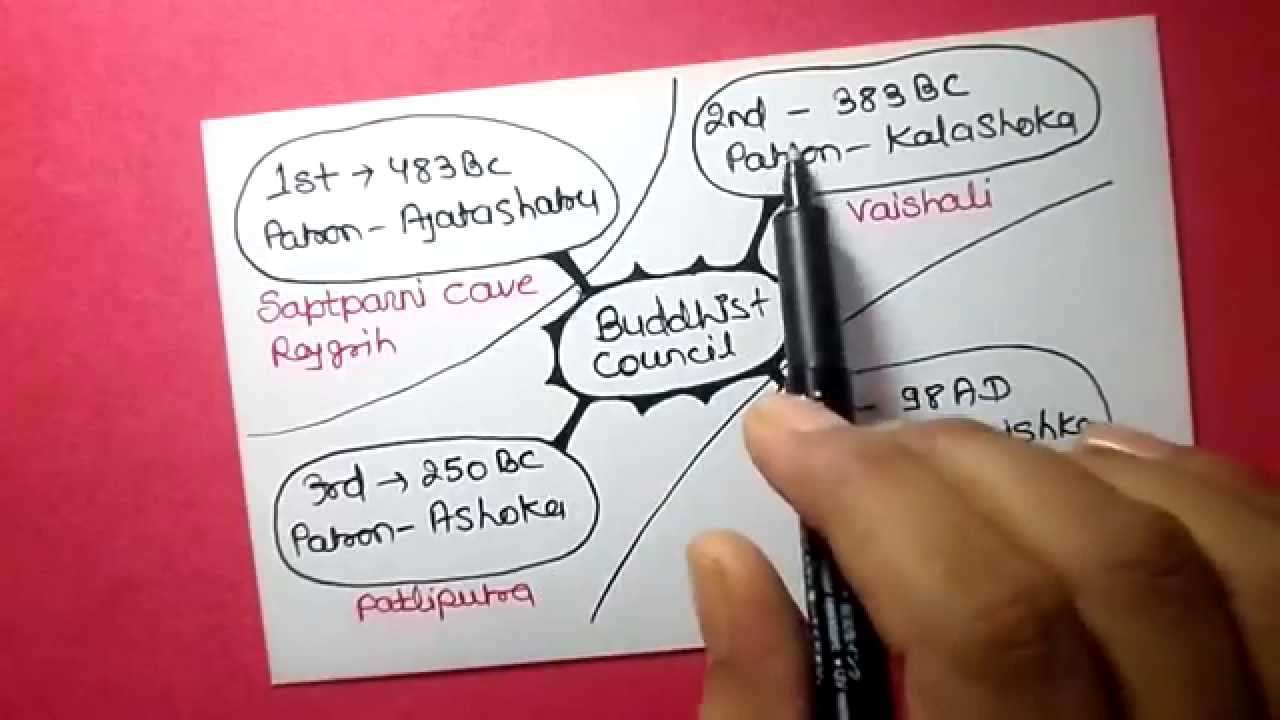 1st → 483 BC
Patron - Ajatashatru
Saptparni cave
Rajgrih
2nd - 383 BC
Patron - Kalashoka
Vaishali
Buddhist
Council
3rd → 250 BC
Patron - Ashoka
Patliputra
- 98 AD